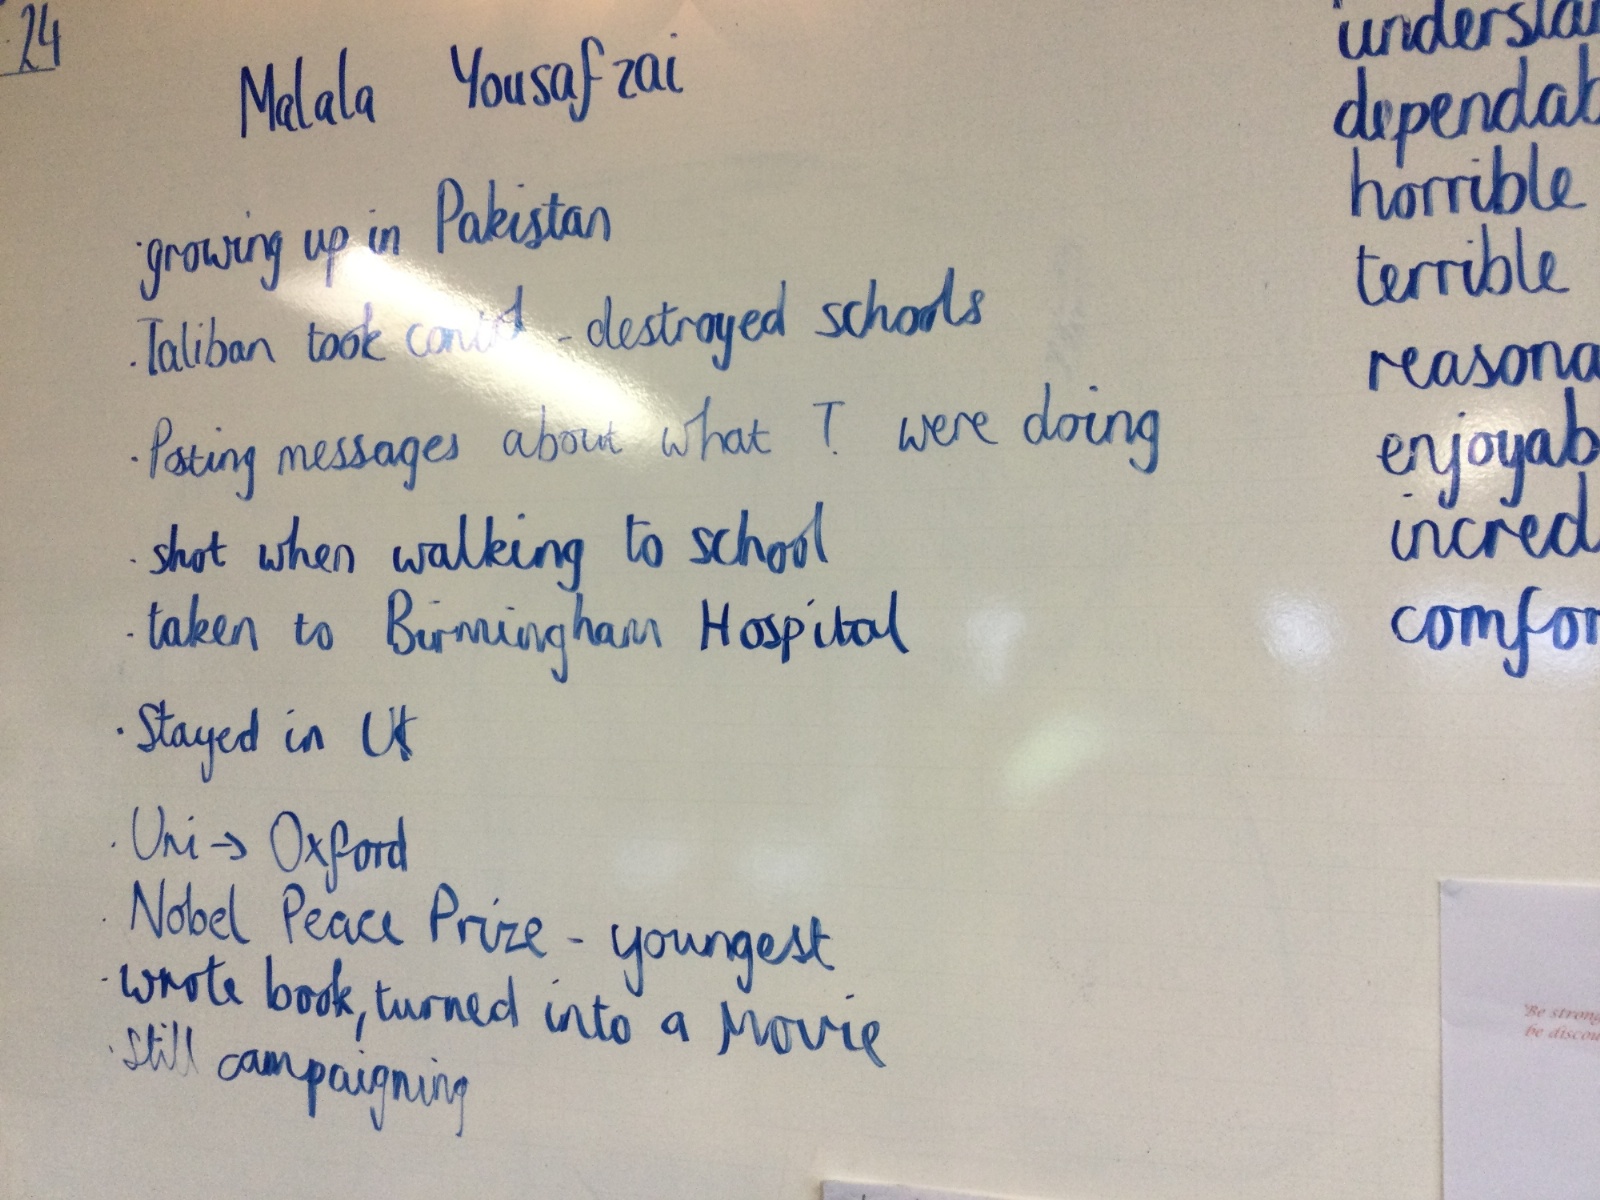 24
Malala Yousafzai
·growing up in Pakistan
·Taliban took control - destroyed schools
·Posting messages about what T were doing
·shot when walking to school
·taken to Birmingham Hospital
·Stayed in UK
·Uni → Oxford
·Nobel Peace Prize - youngest
·wrote book, turned into a Movie
·Still campaigning
understa
dependab
horrible
terrible
reasona
enjoyab
incred
comfor
'Be strong
be discou